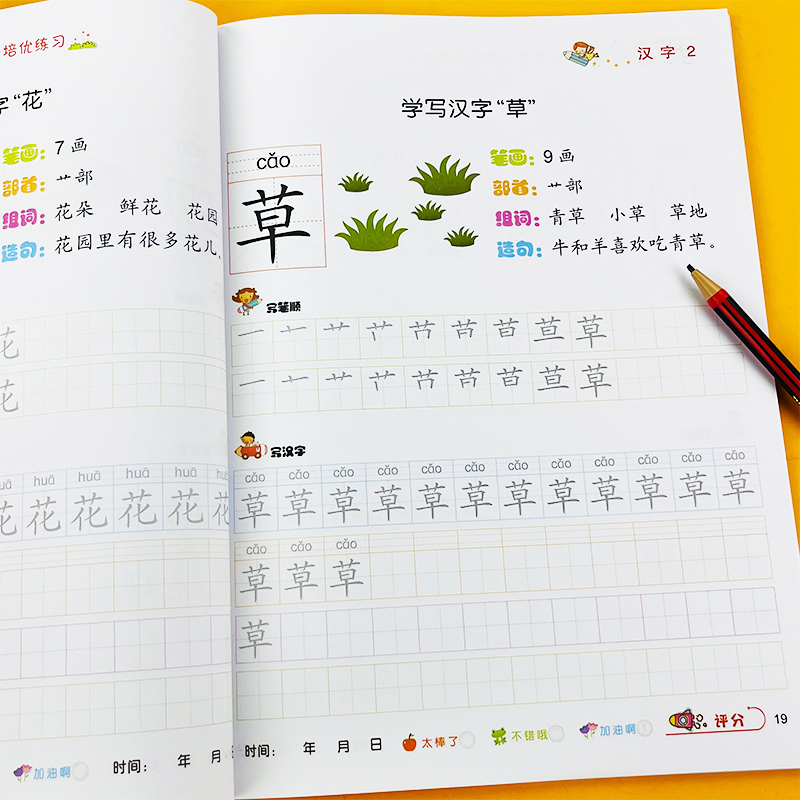 培优练习
字“花”
笔画：7画
部首：艹部
组词：花朵 鲜花 花园
造句：花园里有很多花儿。
花
花
huā huā huā huā huā
花 花 花 花 花 花
加油啊
时间： 年 月 日
汉字 2
学写汉字“草”
cǎo
草
笔画：9画
部首：艹部
组词：青草 小草 草地
造句：牛和羊喜欢吃青草。
写笔顺
草
草
写汉字
cǎo cǎo cǎo cǎo cǎo cǎo cǎo cǎo cǎo cǎo cǎo
草 草 草 草 草 草 草 草 草 草 草 草
cǎo cǎo cǎo
草 草 草
草
时间： 年 月 日 太棒了 不错哦 加油啊 评分 19